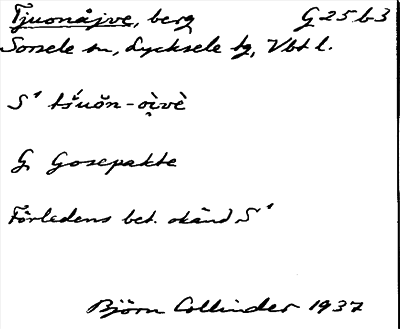 Tjuonåjve, berg G 25 b 3
Sorsele sn, Lycksele tg, Vbt l.
S¹ tšuŏn-oi̯vè
G Gosepakte
Förledens bet. okänd S¹
Björn Collinder 1937